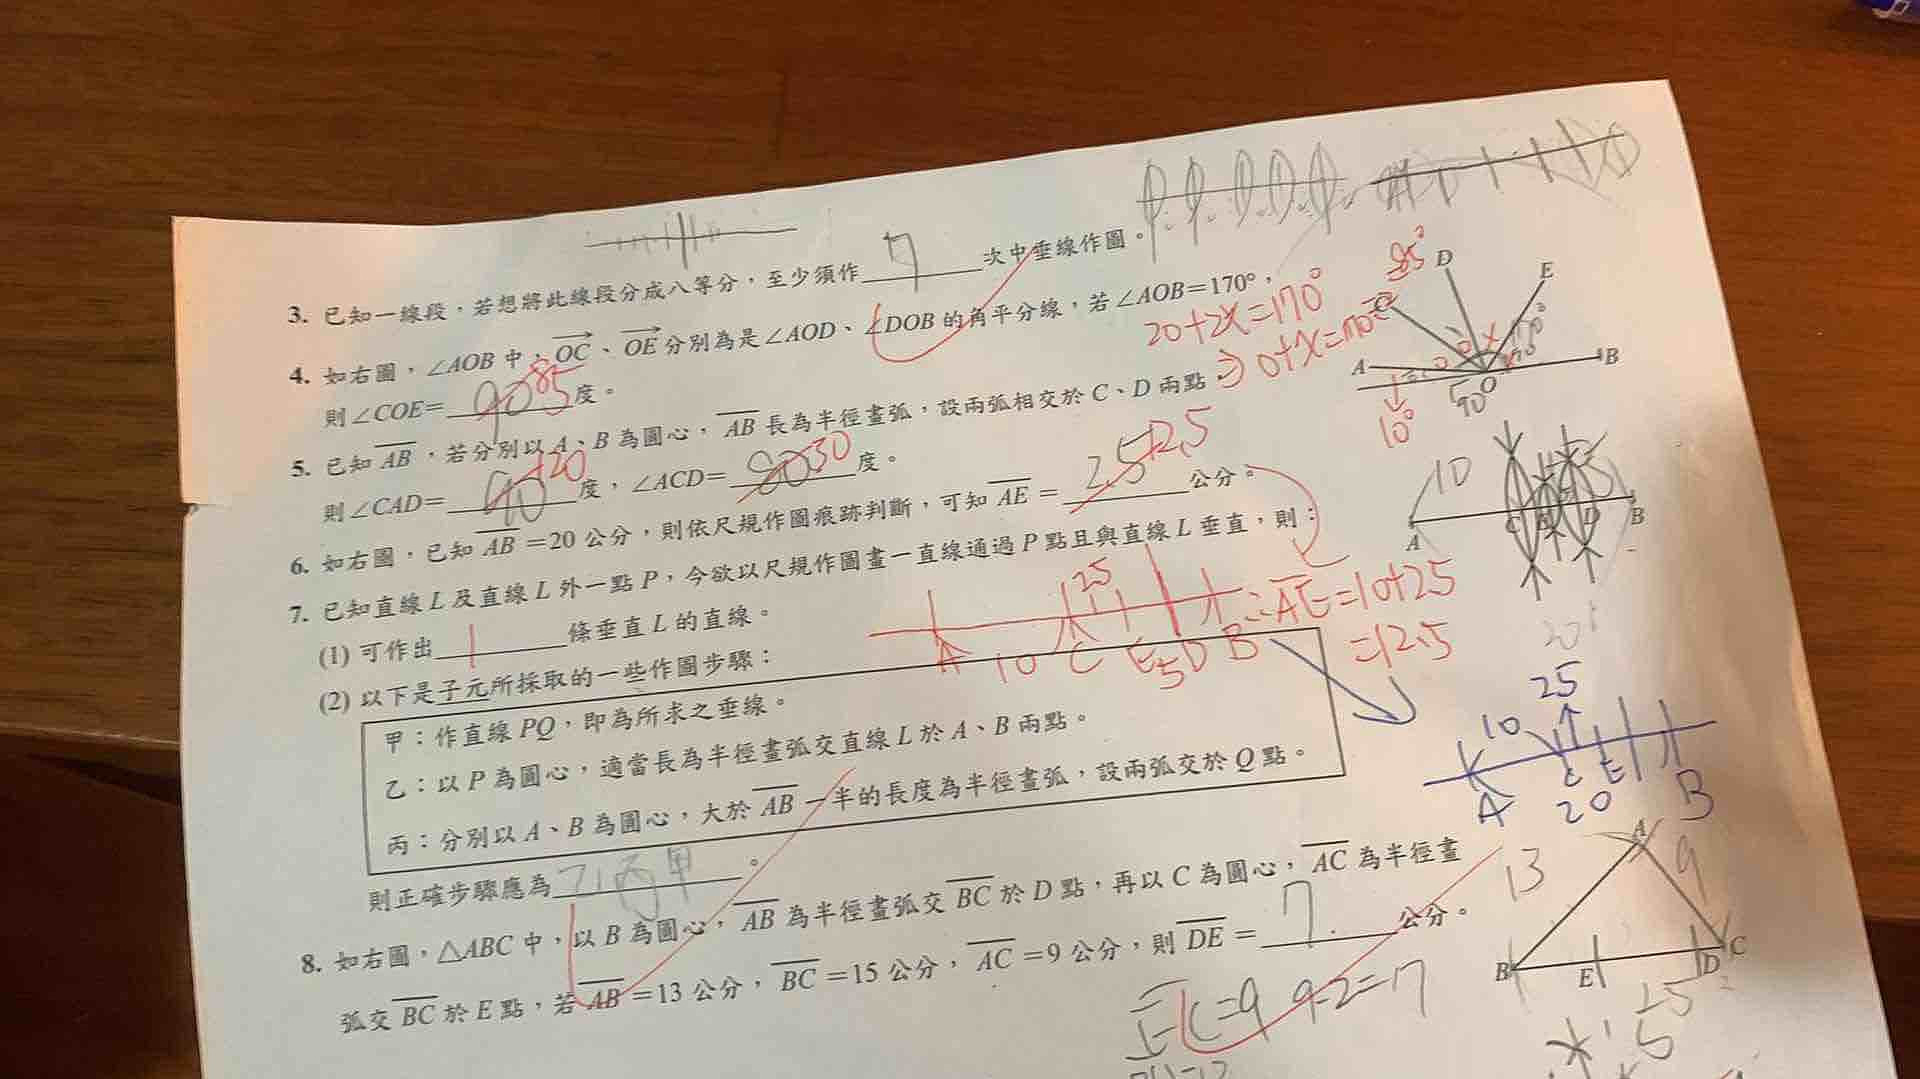 3. 已知一線段，若想將此線段分成八等分，至少須作 7 次中垂線作圖。
4. 如右圖，∠AOB 中，OC、OE 分別為是∠AOD、∠DOB 的角平分線，若∠AOB=170°，
則∠COE= 90 85 度。
20+2X=170°
⇒ 0+X=
85°
D
E
C
A
B
O
90°
10°
5. 已知 AB，若分別以 A、B 為圓心，AB 長為半徑畫弧，設兩弧相交於 C、D 兩點，
則∠CAD= 120 度，∠ACD= 30 度。
6. 如右圖，已知 AB=20 公分，則依尺規作圖痕跡判斷，可知 AE= 2.5 12.5 公分。
10
A
C
D
B
7. 已知直線 L 及直線 L 外一點 P，今欲以尺規作圖畫一直線通過 P 點且與直線 L 垂直，則：
(1) 可作出 1 條垂直 L 的直線。
25
A 10 C E 5 D B
∴AE=10+25
=12.5
(2) 以下是子元所採取的一些作圖步驟：
甲：作直線 PQ，即為所求之垂線。
乙：以 P 為圓心，適當長為半徑畫弧交直線 L 於 A、B 兩點。
丙：分別以 A、B 為圓心，大於 AB 一半的長度為半徑畫弧，設兩弧交於 Q 點。
則正確步驟應為 乙丙甲 。
25
10
A
C
E
B
20
8. 如右圖，△ABC 中，以 B 為圓心，AB 為半徑畫弧交 BC 於 D 點，再以 C 為圓心，AC 為半徑畫
弧交 BC 於 E 點，若 AB=13 公分，BC=15 公分，AC=9 公分，則 DE= 7 公分。
EC=9 9-2=7
A
13
9
B
E
D
C